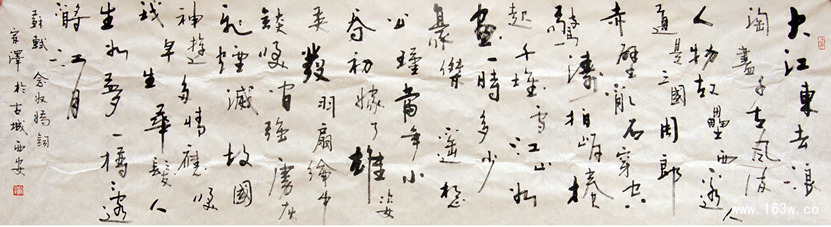 大江東去浪
淘盡千古風流
人物故壘西邊人
道是三國周郎
赤壁亂石穿空
驚濤拍岸捲
起千堆雪江山如
畫一時多少
豪傑遙想
公瑾當年小
喬初嫁了雄姿
英發羽扇綸巾
談笑間強虜灰
飛煙滅故國
神遊多情應笑
我早生華髮人
生如夢一樽還
酹江月
蘇軾念奴嬌詞
宗澤於古城西安
www.163w.co